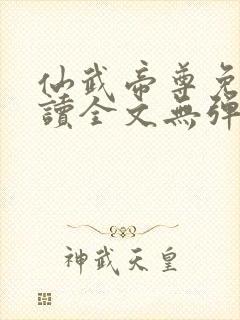 仙武帝尊免
讀全文無彈
神武天皇